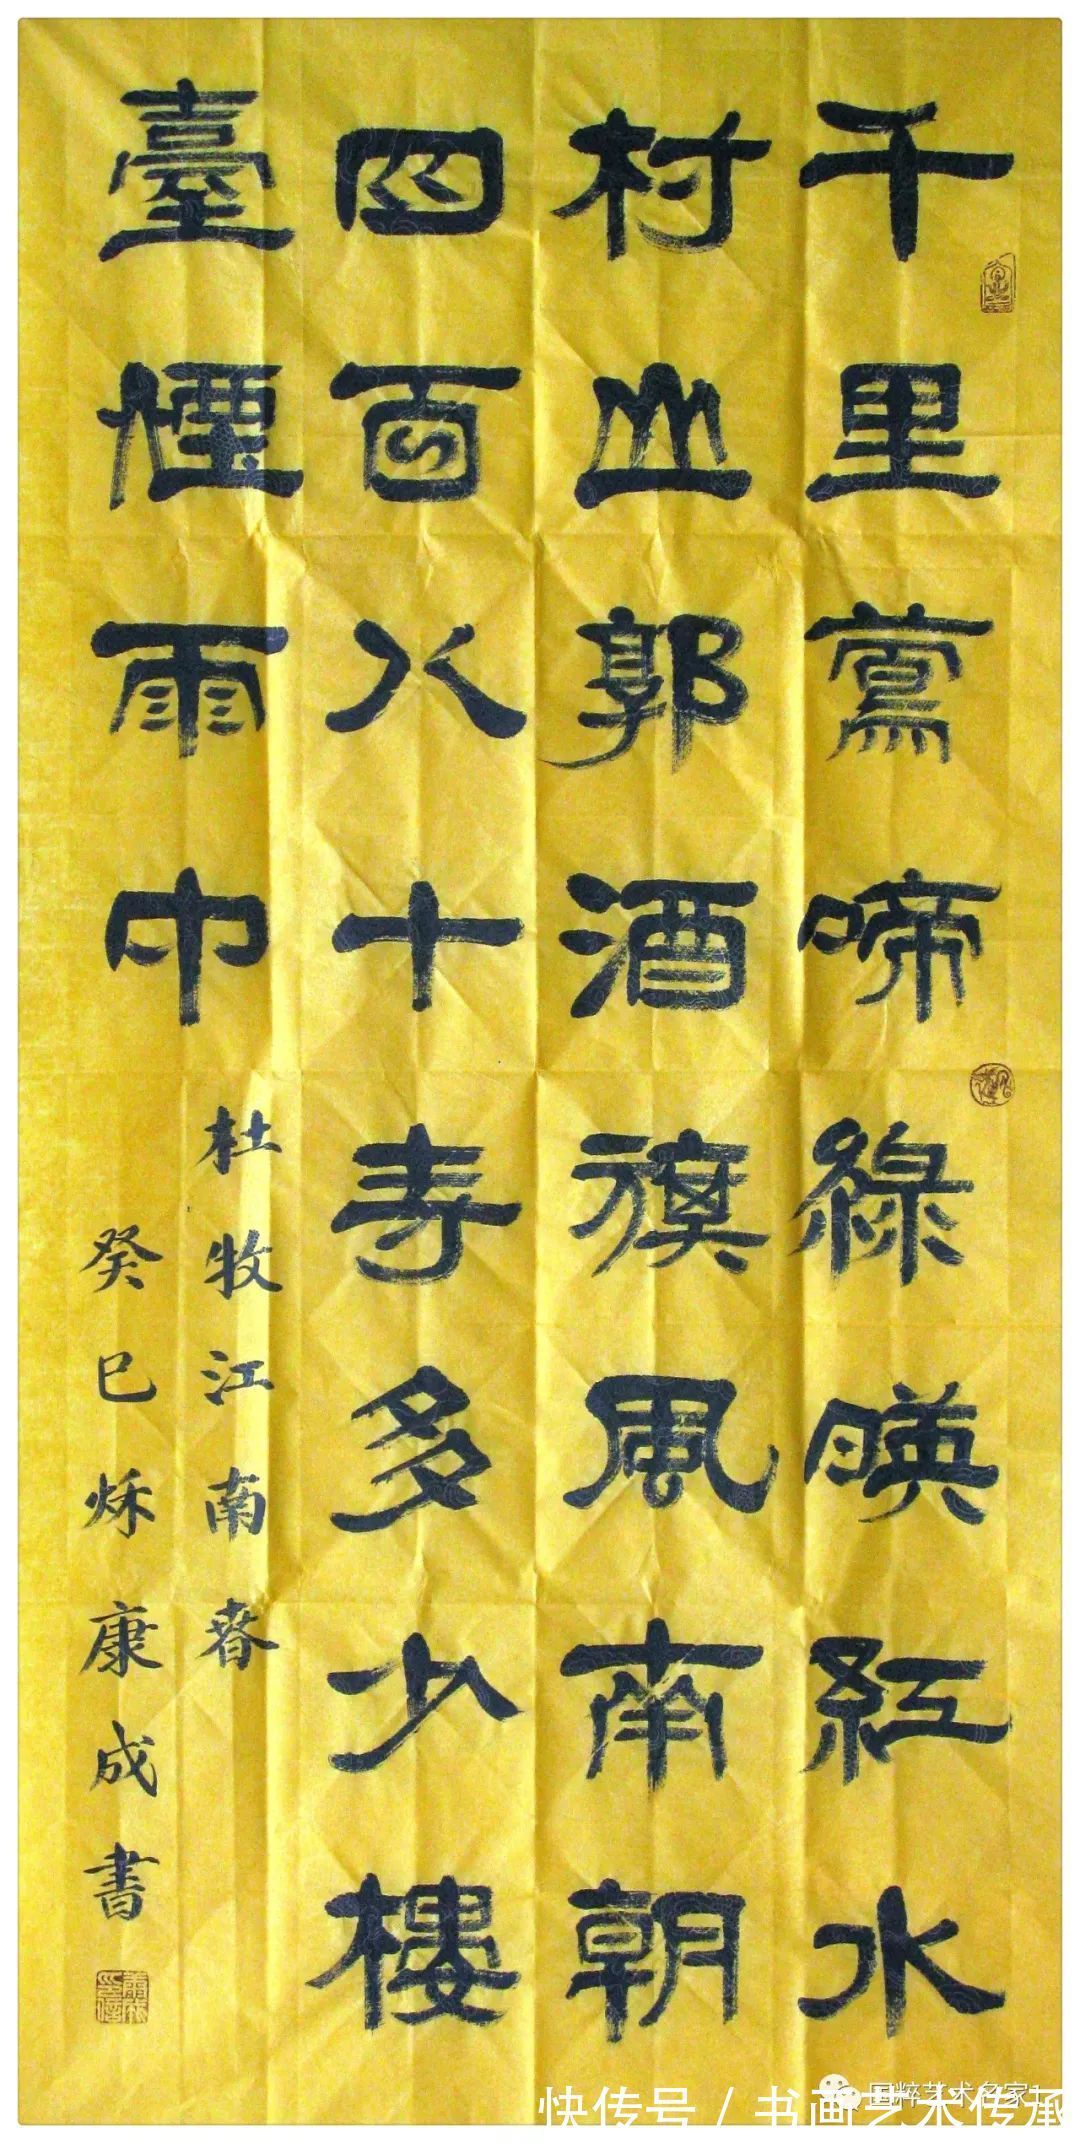 千里鶯啼綠暎紅水
村山郭酒旗風南朝
四百八十寺多少樓
臺煙雨中
杜牧江南春
癸巳秌康成書
国粹艺术名家1
快传号 / 书画艺术传承